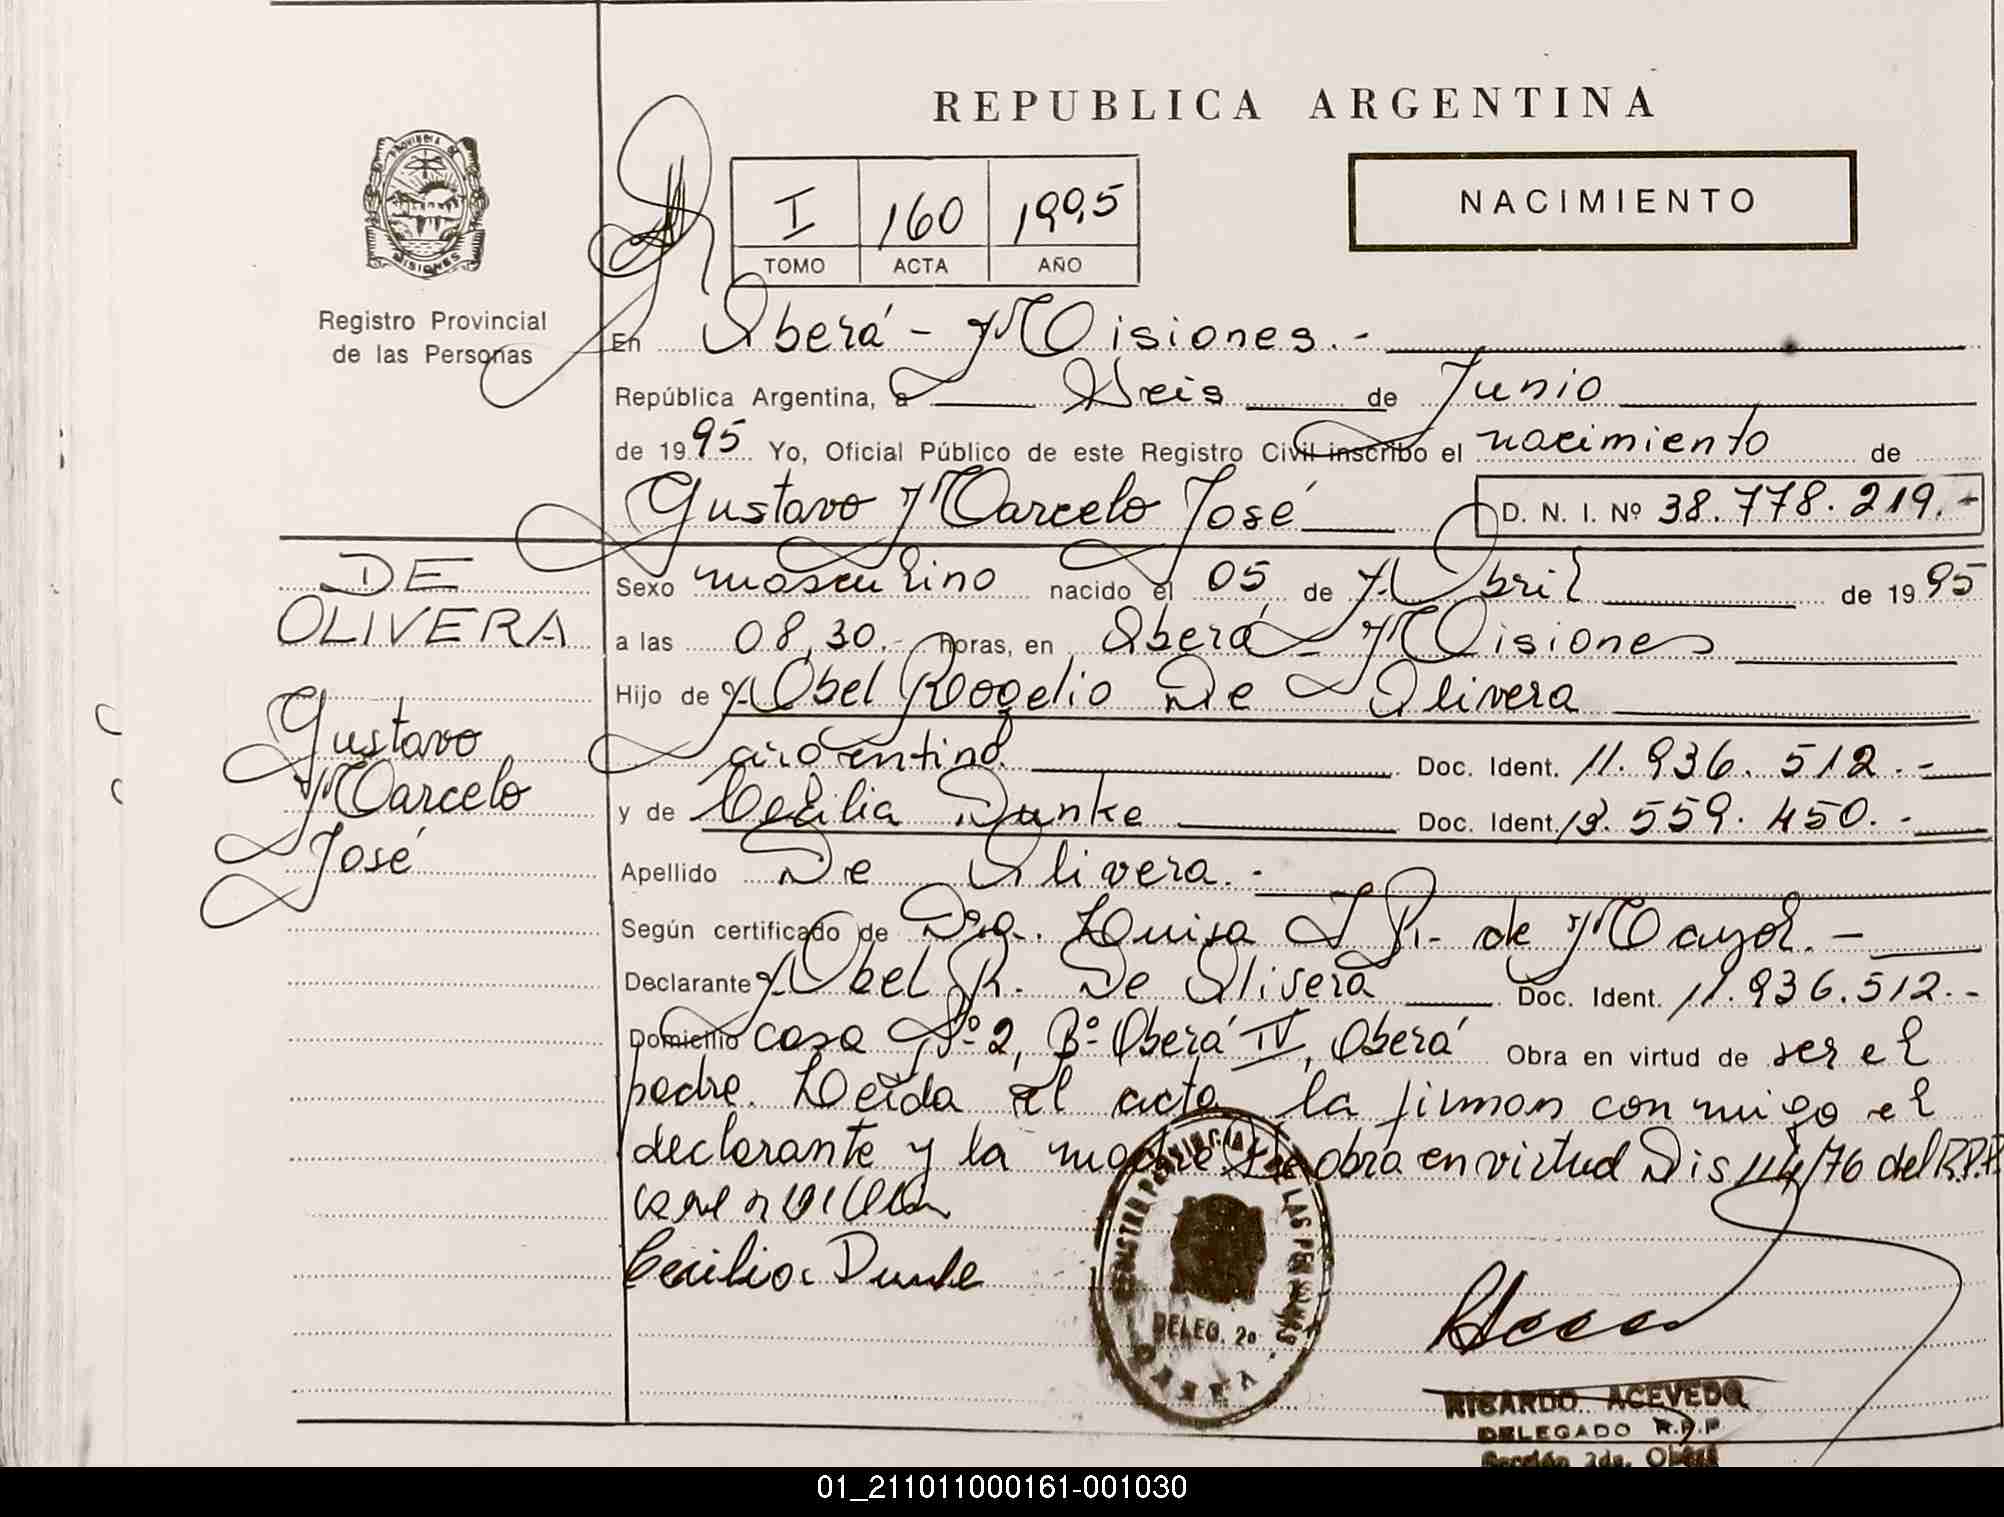 REPUBLICA ARGENTINA
NACIMIENTO
I 160 1995
TOMO ACTA AÑO
Registro Provincial
de las Personas
En Oberá - Misiones.-
República Argentina, a Seis de Junio
de 1995 Yo, Oficial Público de este Registro Civil inscribo el nacimiento de
Gustavo Marcelo José D. N. I. Nº 38.778.219.-
DE
OLIVERA
Gustavo
Marcelo
José
Sexo masculino nacido el 05 de Abril de 1995
a las 08,30.- horas, en Oberá - Misiones
Hijo de Abel Rogelio De Olivera
argentino. Doc. Ident. 11.936.512.-
y de Cecilia Dunke Doc. Ident. 13.559.450.-
Apellido De Olivera.-
Según certificado de Dra. Luisa J R. de Mayol.-
Declarante Abel R. De Olivera Doc. Ident. 11.936.512.-
Domicilio casa Nº 2, Bº Oberá IV, Oberá Obra en virtud de ser el
padre. Leída el acta la firman conmigo el
declarante y la madre Se obra en virtud Dis 114/76 del R.P.P.
Cecilia Dunke
REGISTRO PROVINCIAL DE LAS PERSONAS
DELEG. 2a
OBERA
RICARDO ACEVEDO
DELEGADO R.P.P.
Sección 2da. Oberá
01_211011000161-001030